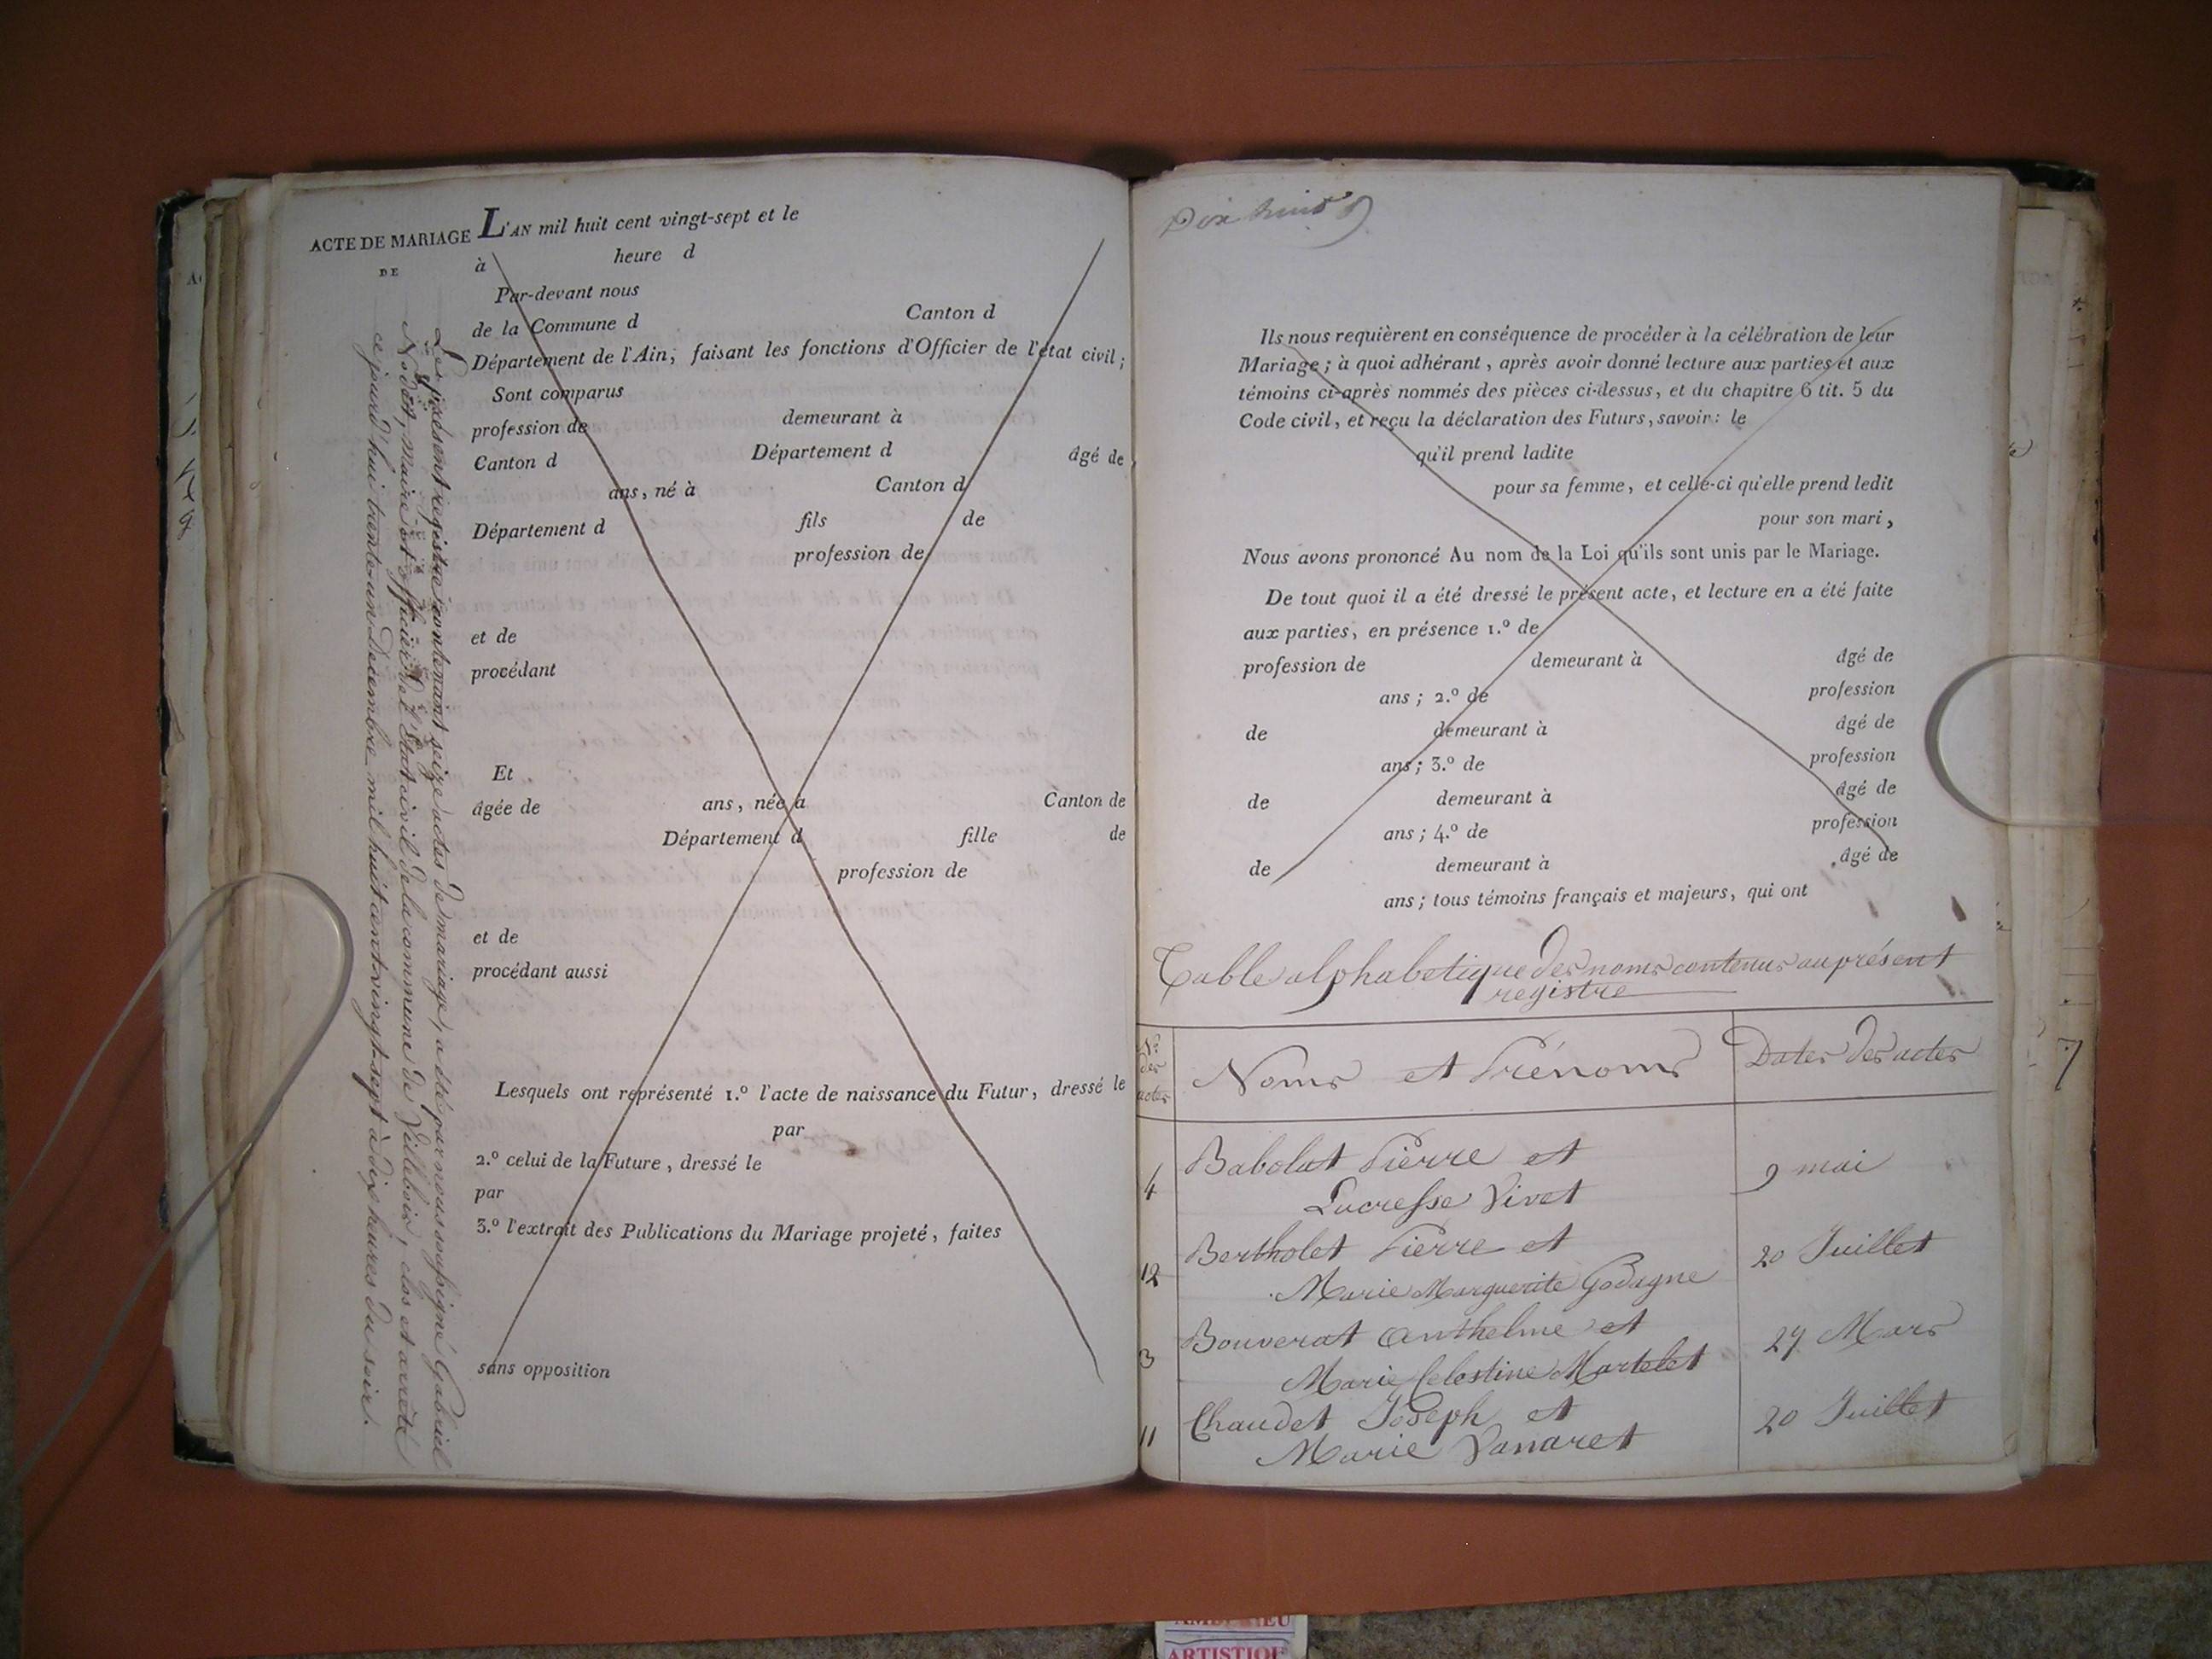 ACTE DE MARIAGE
DE
L'AN mil huit cent vingt-sept et le
à heure d
Par-devant nous
de la Commune d Canton d
Département de l'Ain, faisant les fonctions d'Officier de l'état civil;
Sont comparus
profession de demeurant à
Canton d Département d âgé de
ans, né à Canton d
Département d fils de
profession de
et de
procédant
Et
âgée de ans, née à Canton de
Département d fille de
profession de
et de
procédant aussi
Lesquels ont représenté 1.º l'acte de naissance du Futur, dressé le
par
2.º celui de la Future, dressé le
par
3.º l'extrait des Publications du Mariage projeté, faites
sans opposition
Le présent registre contenant seize actes de mariage, a été par nous soussigné Gabriel
Nodet, Maire et officier de l'Etat civil de la commune de Villebois, clos et arrêté
ce jourd'hui trente un Décembre mil huit cent vingt-sept à dix heures du soir.
Dix huit
Ils nous requièrent en conséquence de procéder à la célébration de leur
Mariage; à quoi adhérant, après avoir donné lecture aux parties et aux
témoins ci-après nommés des pièces ci-dessus, et du chapitre 6 tit. 5 du
Code civil, et reçu la déclaration des Futurs, savoir: le
qu'il prend ladite
pour sa femme, et celle-ci qu'elle prend ledit
pour son mari,
Nous avons prononcé Au nom de la Loi qu'ils sont unis par le Mariage.
De tout quoi il a été dressé le présent acte, et lecture en a été faite
aux parties, en présence 1.º de
profession de demeurant à âgé de
ans; 2.º de profession
de demeurant à âgé de
ans; 3.º de profession
de demeurant à âgé de
ans; 4.º de profession
de demeurant à âgé de
ans; tous témoins français et majeurs, qui ont
Table alphabetique des noms contenus au présent
registre
Nos des actes Noms et Prénoms Dates des actes
4 Babolat Pierre et 9 mai
Lucresse Vivet
12 Bertholet Pierre et 20 Juillet
Marie Marguerite Godagne
3 Bouverat Anthelme et 29 Mars
Marie Celestine Martelet
11 Chaudet Joseph et 20 Juillet
Marie Vanaret
7
ARTISTIQUE